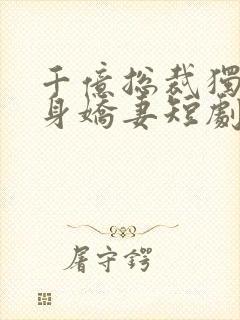 千億總裁獨
身嬌妻短劇
屠守鍔